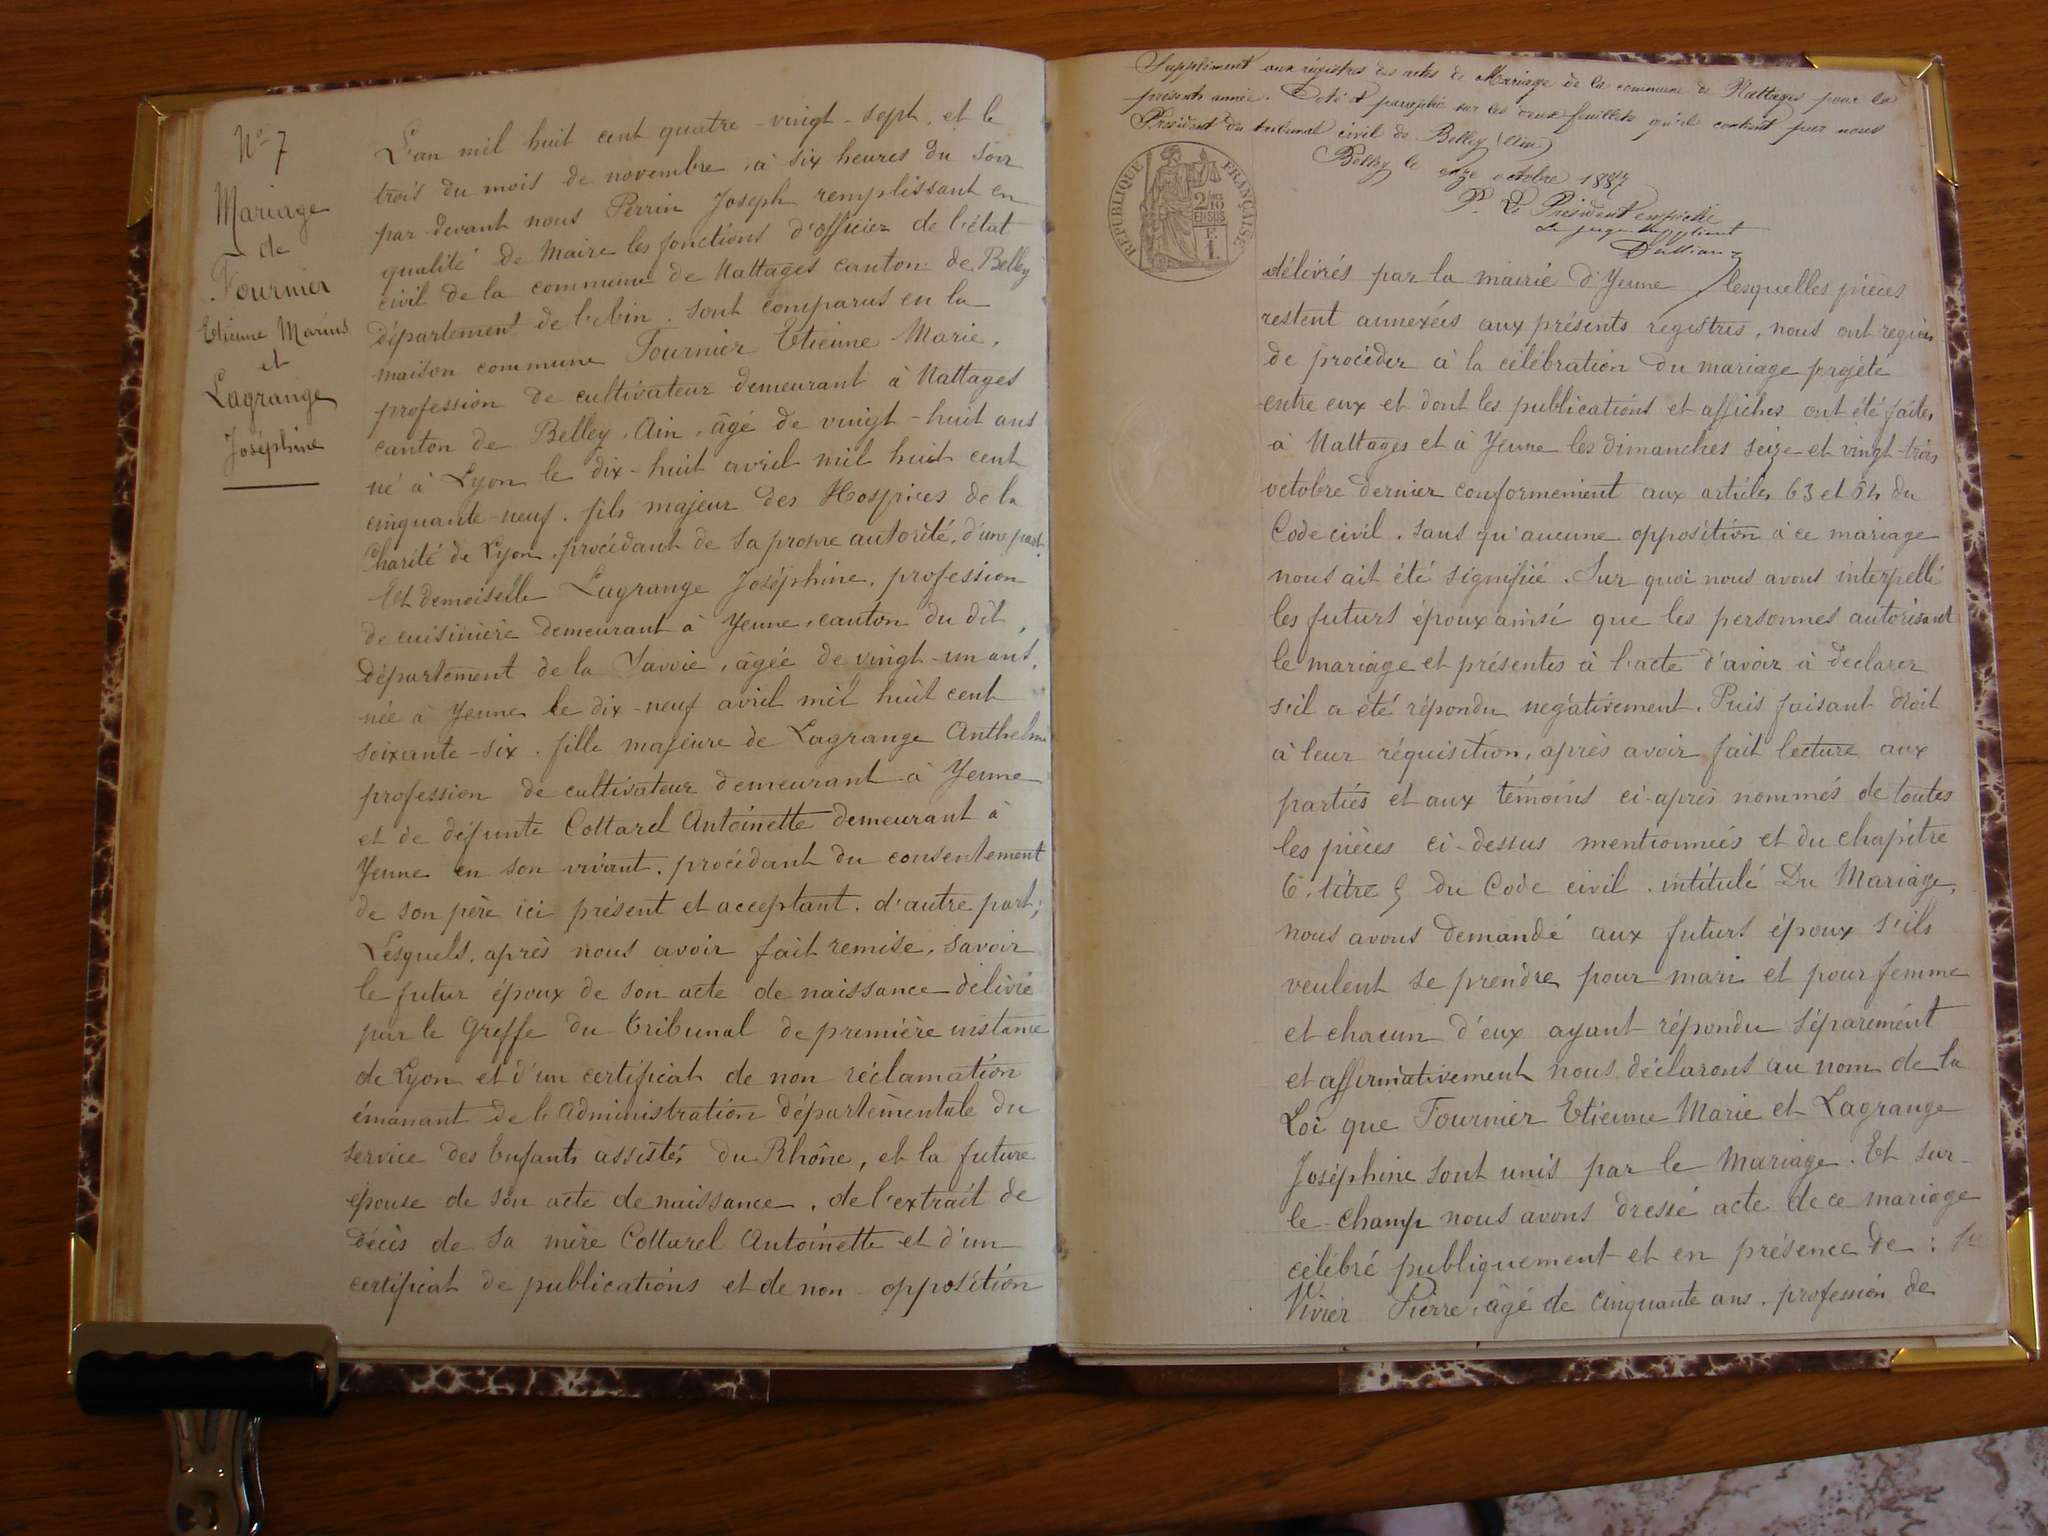 N° 7
Mariage
de
Fournier
Etienne Marius
et
Lagrange
Joséphine
L'an mil huit cent quatre-vingt-sept, et le
trois du mois de novembre, à six heures du soir
par devant nous Perrin Joseph remplissant en
qualité de Maire les fonctions d'officier de l'état
civil de la commune de Nattages canton de Belley
département de l'Ain. sont comparus en la
maison commune Fournier Etienne Marie,
profession de cultivateur demeurant à Nattages
canton de Belley, Ain, âgé de vingt-huit ans
né à Lyon le dix-huit avril mil huit cent
cinquante-neuf. fils majeur des Hospices de la
Charité de Lyon, procédant de sa propre autorité, d'une part.
Et demoiselle Lagrange Joséphine, profession
de cuisinière demeurant à Yenne, canton du dit,
département de la Savoie, âgée de vingt-un ans,
née à Yenne le dix-neuf avril mil huit cent
soixante-six. fille majeure de Lagrange Anthelme
profession de cultivateur demeurant à Yenne
et de défunte Cottarel Antoinette demeurant à
Yenne en son vivant. procédant du consentement
de son père ici présent et acceptant. d'autre part;
Lesquels, après nous avoir fait remise, savoir
le futur époux de son acte de naissance délivré
par le Greffe du tribunal de première instance
de Lyon et d'un certificat de non réclamation
émanant de l'administration départementale du
service des Enfants assistés du Rhône, et la future
épouse de son acte de naissance, de l'extrait de
décès de sa mère Cottarel Antoinette et d'un
certificat de publications et de non-opposition
Supplément aux registres des actes de Mariage de la commune de Nattages pour la
présente année. Coté et paraphé sur les deux feuillets qu'il contient par nous
Président du tribunal civil de Belley (Ain)
Belley le onze octobre 1887
P. Le Président empêché
Le juge suppléant
RÉPUBLIQUE FRANÇAISE
2/10
EN SUS
délivrés par la mairie d'Yenne, lesquelles pièces
restent annexées aux présents registres, nous ont requis
de procéder à la célébration du mariage projeté
entre eux et dont les publications et affiches ont été faites
à Nattages et à Yenne les dimanches seize et vingt-trois
octobre dernier conformément aux articles 63 et 64 du
Code civil. sans qu'aucune opposition à ce mariage
nous ait été signifiée. Sur quoi nous avons interpellé
les futurs époux ainsi que les personnes autorisant
le mariage et présentes à l'acte d'avoir à déclarer
s'il a été répondu négativement. Puis faisant droit
à leur réquisition, après avoir fait lecture aux
parties et aux témoins ci-après nommés de toutes
les pièces ci-dessus mentionnées et du chapitre
6. titre 5 du Code civil. intitulé Du Mariage,
nous avons demandé aux futurs époux s'ils
veulent se prendre pour mari et pour femme
et chacun d'eux ayant répondu séparément
et affirmativement nous déclarons au nom de la
Loi que Fournier Etienne Marie et Lagrange
Joséphine sont unis par le mariage. Et sur-
le-champ nous avons dressé acte de ce mariage
célébré publiquement et en présence de: 1°
Vivier Pierre, âgé de cinquante ans, profession de